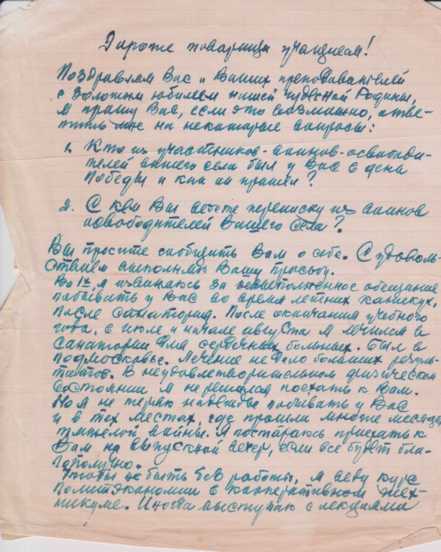 Дорогие товарищи учащиеся!
Поздравляем Вас и Ваших преподавателей
с золотым юбилеем нашей чудесной Родины,
и прошу Вас, если это возможно, отве-
тить мне на некоторые вопросы:
1. Кто из участников-воинов-освободи-
телей вашего села был у Вас в день
Победы и как он прошел?
2. С кем Вы ведете переписку из воинов
освободителей Вашего села?
Вы просите сообщить Вам о себе. С удоволь-
ствием выполняю Вашу просьбу.
Во 1х, я извиняюсь за невыполненное обещание
побывать у Вас во время летних каникул,
после санатория. После окончания учебного
года, в июле и начале августа я лечился в
санатории для сердечных больных. Был в
Подмосковье. Лечение не дало больших резуль-
татов. В неудовлетворительном физическом
состоянии я не решился поехать к Вам.
Но я не теряю надежды побывать у Вас
и в тех местах, где прошли многие месяцы
тяжелой войны. Я постараюсь приехать к
Вам на выпускной вечер, если все будет бла-
гополучно.
Чтобы не быть без работы, я веду курс
политэкономии в кооперативном тех-
никуме. Иногда выступаю с лекциями